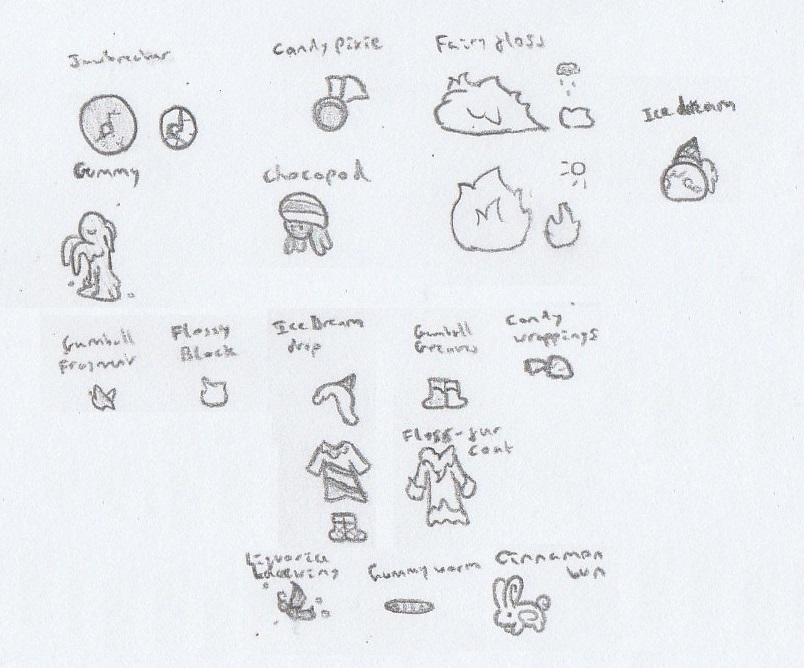 Jawbreaker
Candy pixie
Fairy gloss
Ice dream
Gummy
Chocopod
Gumball
Fragment
Flossy
Block
Ice Dream
drop
Gumball
Greaves
Candy
wrappings
Floss-fur
Coat
Liquorice
Lacewing
Gummy worm
Cinnamon
bun